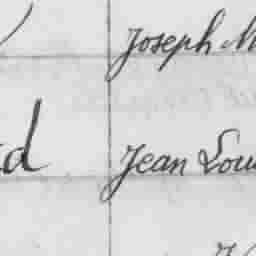 Joseph M
d Jean Lou